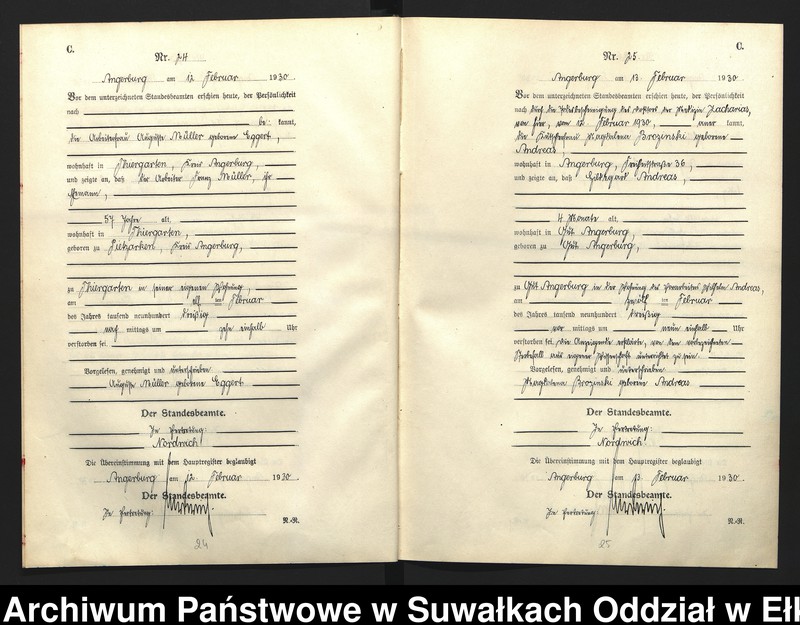 C.
Nr. 24
Angerburg am 12. Februar 1930.
Vor dem unterzeichneten Standesbeamten erschien heute, der Persönlichkeit
nach
be- kannt,
die Arbeiterfrau Auguste Müller geborene Eggert,
wohnhaft in Thiergarten, Kreis Angerburg,
und zeigte an, daß der Arbeiter Müller, ihr
Ehemann,
57 Jahre alt,
wohnhaft in Thiergarten,
geboren zu Kreis Angerburg,
zu Thiergarten in seiner eigenen Wohnung,
am elf ten Februar
des Jahres tausend neunhundert dreißig
nach mittags um zehn einhalb Uhr
verstorben sei.
Vorgelesen, genehmigt und unterschrieben
Auguste Müller geborene Eggert
Der Standesbeamte.
In Vertretung:
Nordrach.
Die Übereinstimmung mit dem Hauptregister beglaubigt
Angerburg am 12. Februar 1930.
Der Standesbeamte.
In Vertretung:
N.-R.
24
C.
Nr. 25
Angerburg am 13. Februar 1930
Vor dem unterzeichneten Standesbeamten erschien heute, der Persönlichkeit
nach durch die des Doktors der Medizin Zacharias,
von hier, vom 12. Februar 1930, aner kannt,
die Magdalena Brozinski geborene
Andreas,
wohnhaft in Angerburg, 36,
und zeigte an, daß Hildegard Andreas,
4 Monate alt,
wohnhaft in Gut Angerburg,
geboren zu Gut Angerburg,
zu Gut Angerburg in der Wohnung des Wilhelm Andreas,
am zwölf ten Februar
des Jahres tausend neunhundert dreißig
vor mittags um neun einhalb Uhr
verstorben sei. Die Anzeigende erklärte, von dem vorbezeichneten
Sterbefall aus eigener Wissenschaft unterrichtet zu sein.
Vorgelesen, genehmigt und unterschrieben
Magdalena Brozinski geborene Andreas
Der Standesbeamte.
In Vertretung:
Nordrach.
Die Übereinstimmung mit dem Hauptregister beglaubigt
Angerburg am 13. Februar 1930.
Der Standesbeamte.
In Vertretung:
N.-R.
25
Archiwum Państwowe w Suwałkach Oddział w Ełk